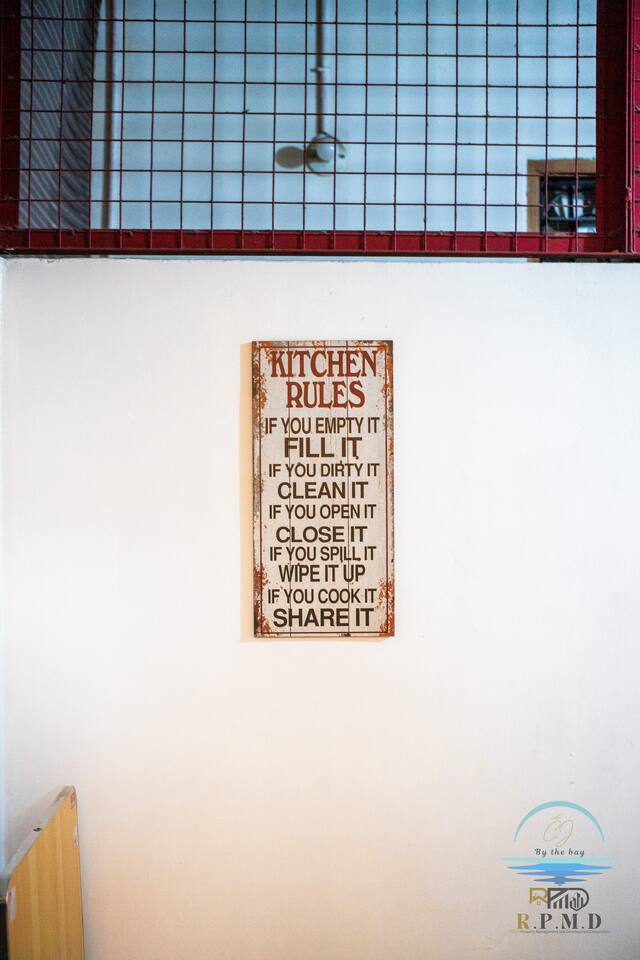 KITCHEN
RULES
IF YOU EMPTY IT
FILL IT
IF YOU DIRTY IT
CLEAN IT
IF YOU OPEN IT
CLOSE IT
IF YOU SPILL IT
WIPE IT UP
IF YOU COOK IT
SHARE IT
By the bay
R.P.M.D
Property Management and Development Corporation